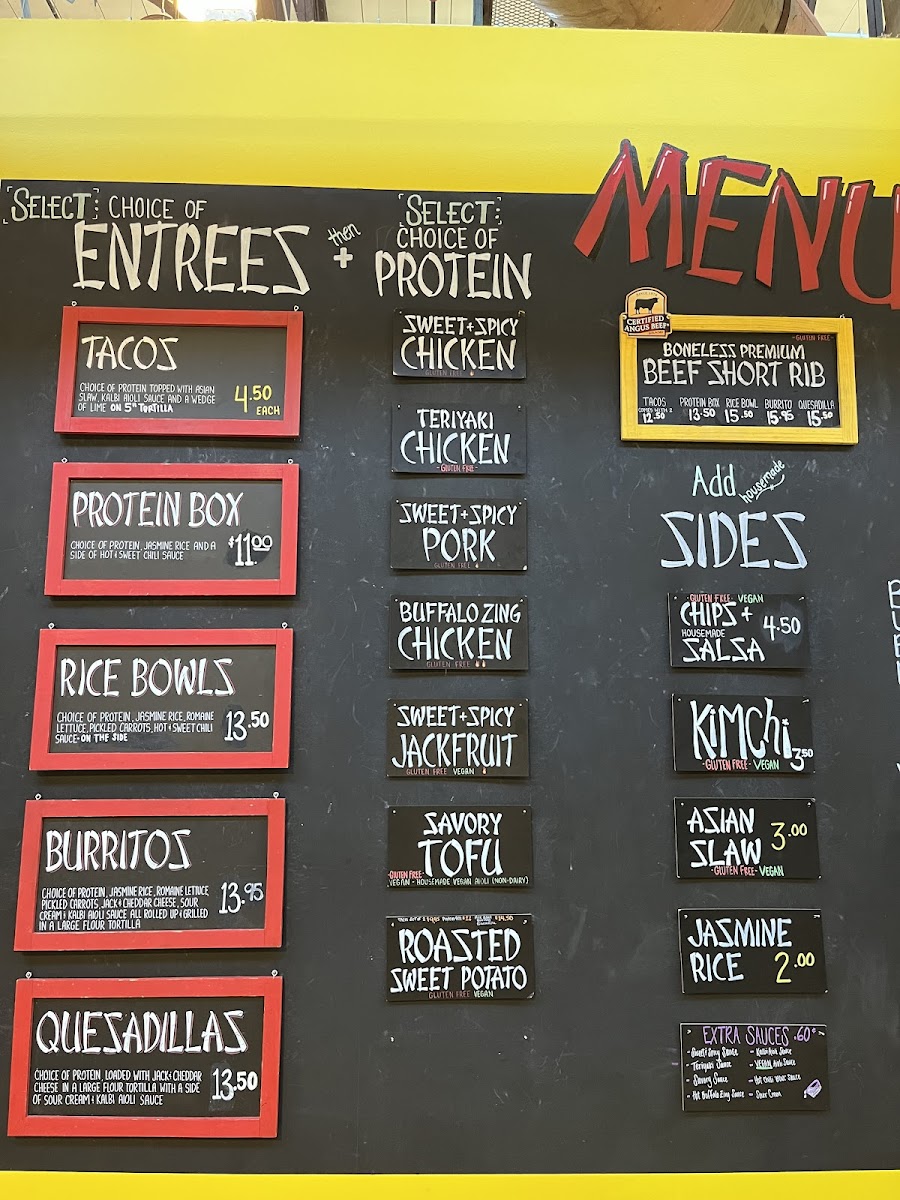 SELECT: CHOICE OF
ENTREES
then
+
SELECT:
CHOICE OF
PROTEIN
MENU
TACOS
CHOICE OF PROTEIN TOPPED WITH ASIAN
SLAW, KALBI AIOLI SAUCE AND A WEDGE
OF LIME ON 5" TORTILLA
4.50
EACH
PROTEIN BOX
CHOICE OF PROTEIN, JASMINE RICE AND A
SIDE OF HOT & SWEET CHILI SAUCE
$11.00
RICE BOWLS
CHOICE OF PROTEIN, JASMINE RICE, ROMAINE
LETTUCE, PICKLED CARROTS, HOT & SWEET CHILI
SAUCE- ON THE SIDE
13.50
BURRITOS
CHOICE OF PROTEIN, JASMINE RICE, ROMAINE LETTUCE
PICKLED CARROTS, JACK & CHEDDAR CHEESE, SOUR
CREAM & KALBI AIOLI SAUCE ALL ROLLED UP & GRILLED
IN A LARGE FLOUR TORTILLA
13.95
QUESADILLAS
CHOICE OF PROTEIN, LOADED WITH JACK & CHEDDAR
CHEESE IN A LARGE FLOUR TORTILLA WITH A SIDE
OF SOUR CREAM & KALBI AIOLI SAUCE
13.50
SWEET+SPICY
CHICKEN
GLUTEN FREE
TERIYAKI
CHICKEN
-GLUTEN FREE-
SWEET+SPICY
PORK
GLUTEN FREE
BUFFALO ZING
CHICKEN
GLUTEN FREE
SWEET+SPICY
JACKFRUIT
GLUTEN FREE VEGAN
SAVORY
TOFU
-GLUTEN FREE-
VEGAN - HOUSEMADE VEGAN AIOLI (NON-DAIRY)
ROASTED
SWEET POTATO
GLUTEN FREE VEGAN
CERTIFIED
ANGUS BEEF
-GLUTEN FREE-
BONELESS PREMIUM
BEEF SHORT RIB
TACOS PROTEIN BOX RICE BOWL BURRITO QUESADILLA
COMES WITH 2
12.50 13.50 15.50 15.95 15.50
Add housemade
SIDES
-GLUTEN FREE- VEGAN
CHIPS +
HOUSEMADE
SALSA
4.50
KIMCHI
3.50
-GLUTEN FREE- VEGAN
ASIAN
SLAW
3.00
-GLUTEN FREE- VEGAN
JASMINE
RICE
2.00
EXTRA SAUCES .60¢
- Sweet & Spicy Sauce
- Teriyaki Sauce
- Savory Sauce
- Hot Buffalo Zing Sauce
- Kalbi Aioli Sauce
- VEGAN Aioli Sauce
- Sour Cream